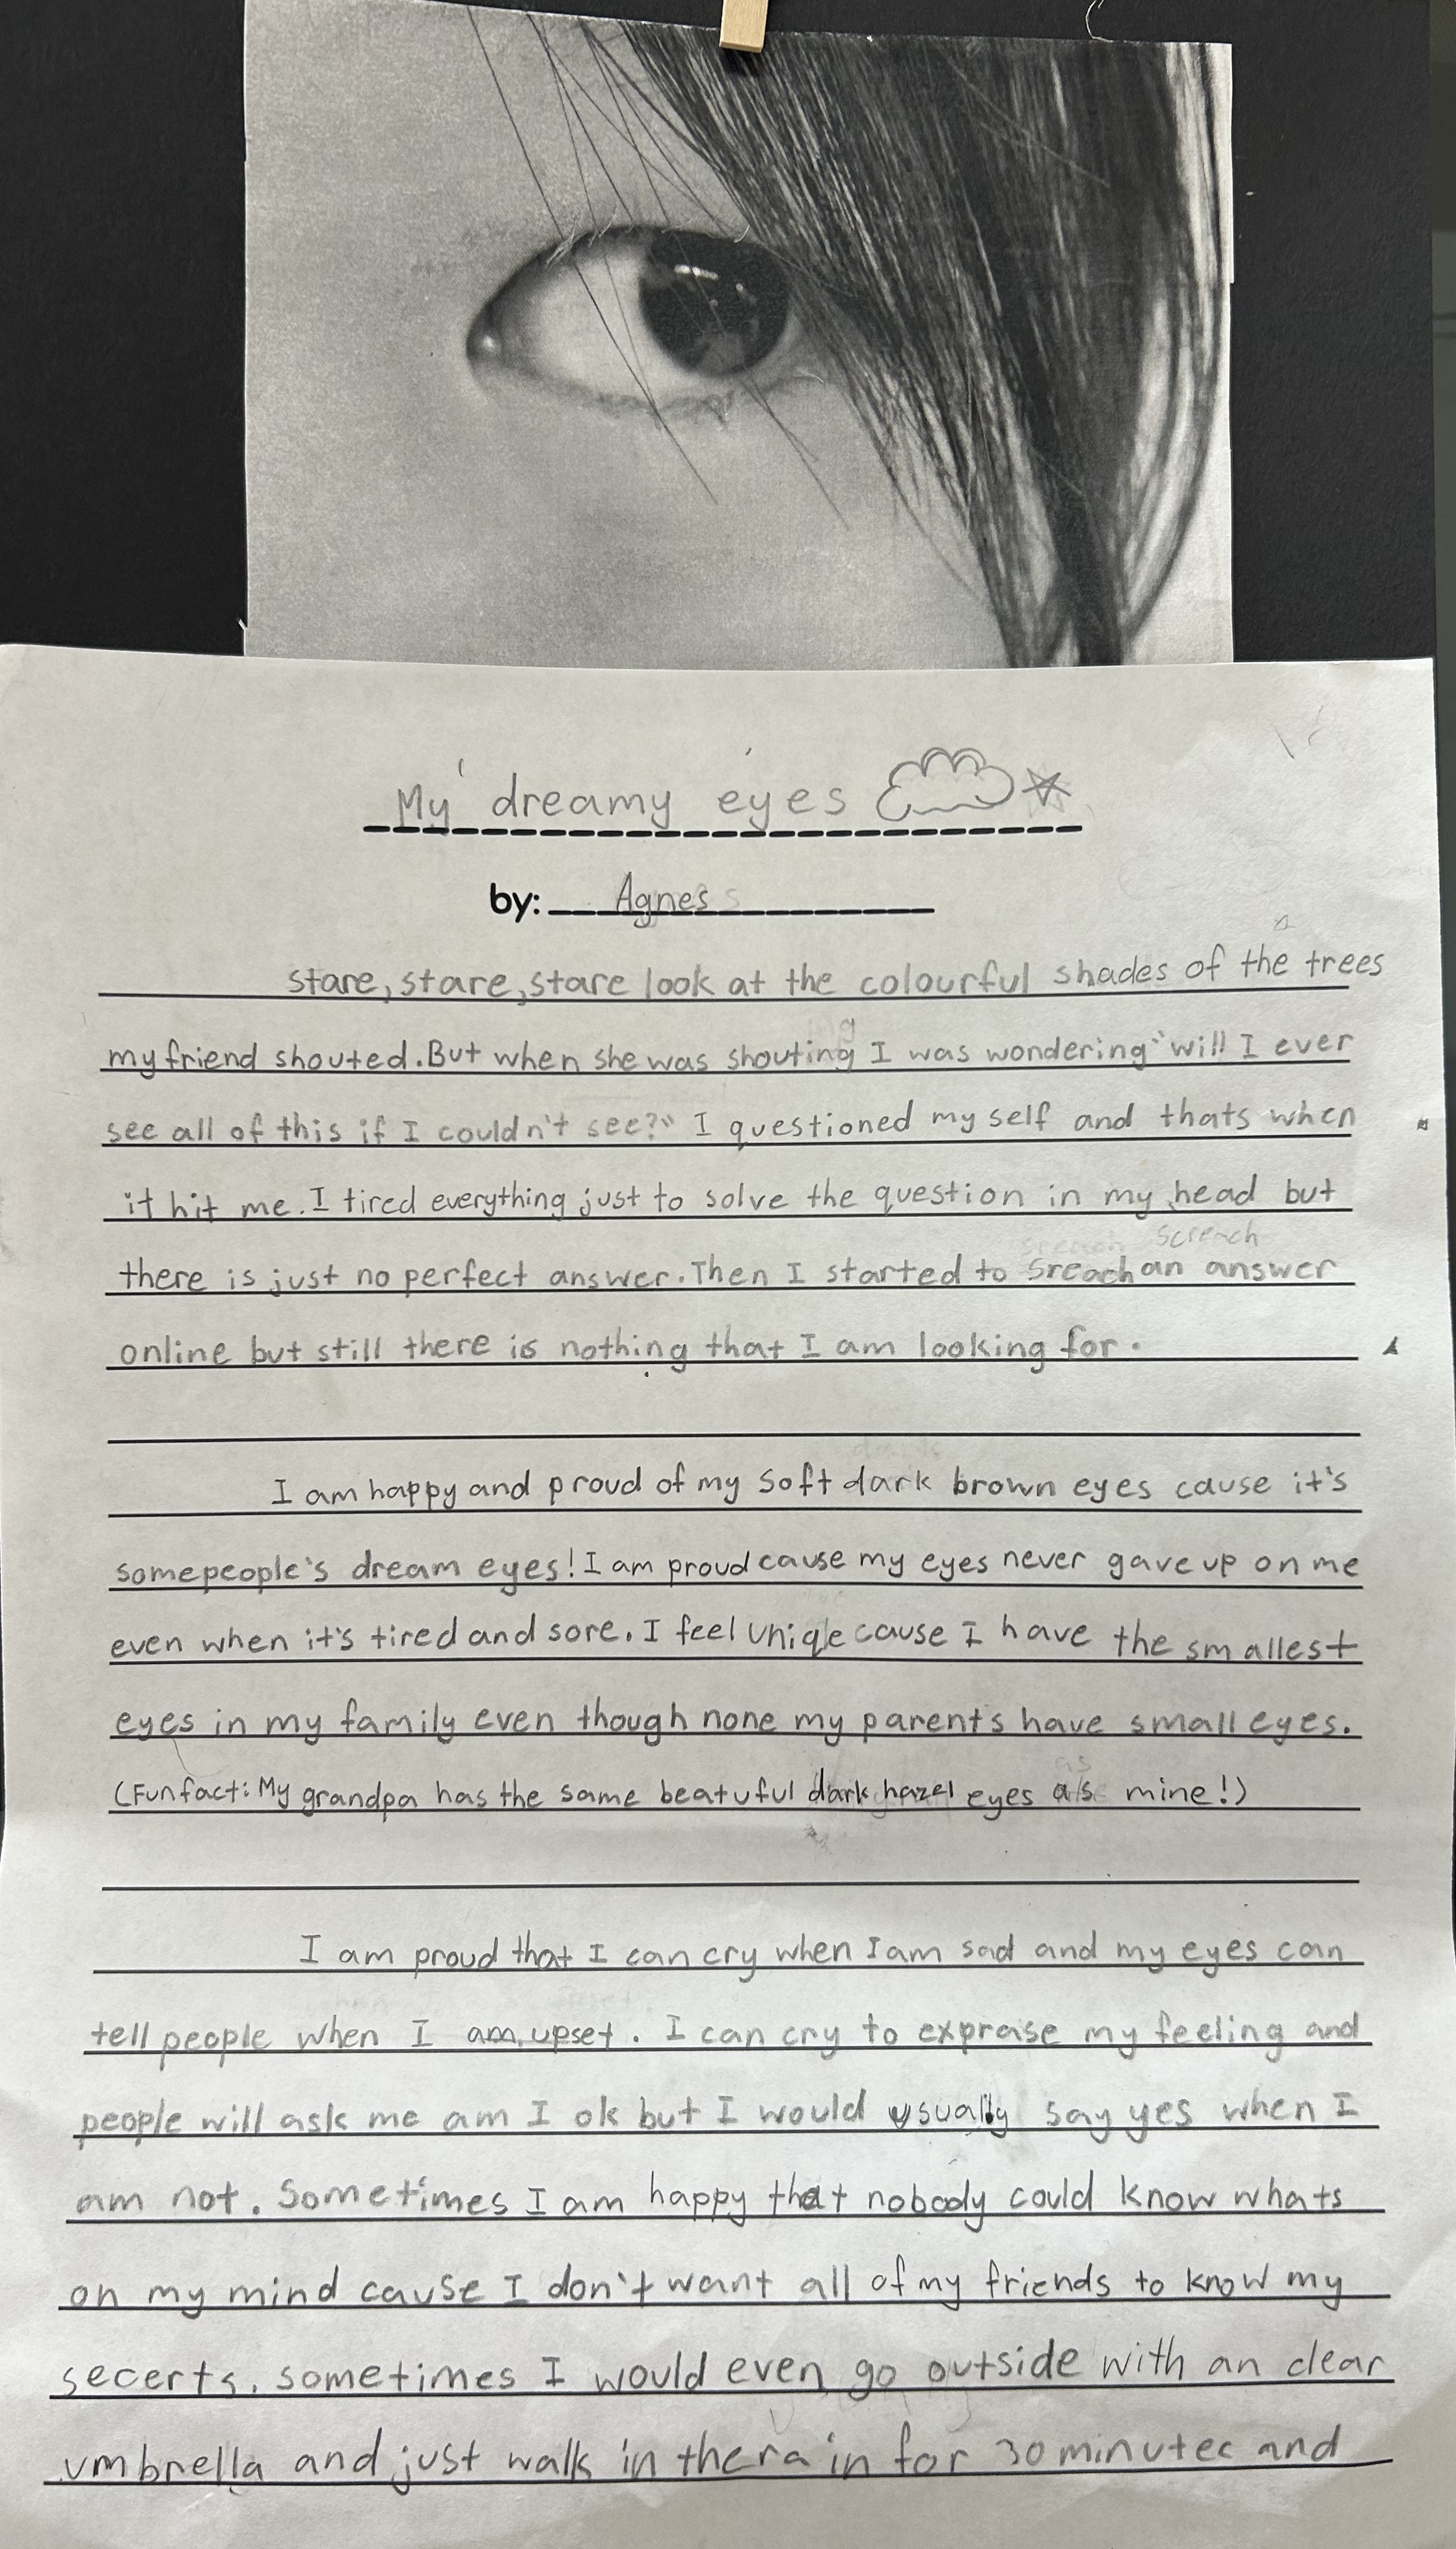 My dreamy eyes
by: Agnes
stare, stare, stare look at the colourful shades of the trees
my friend shouted. But when she was shouting I was wondering "will I ever
see all of this if I couldn't see?" I questioned my self and thats when
it hit me. I tired everything just to solve the question in my head but
screach
there is just no perfect answer. Then I started to sreach an answer
online but still there is nothing that I am looking for.
I am happy and proud of my soft dark brown eyes cause it's
somepeople's dream eyes! I am proud cause my eyes never gave up on me
even when it's tired and sore. I feel uniqle cause I have the smallest
eyes in my family even though none my parents have small eyes.
(Fun fact: My grandpa has the same beatuful dark hazel eyes as mine!)
I am proud that I can cry when I am sad and my eyes can
tell people when I am upset. I can cry to expraise my feeling and
people will ask me am I ok but I would usually say yes when I
am not. Sometimes I am happy that nobody could know whats
on my mind cause I don't want all of my friends to know my
secerts. sometimes I would even go outside with an clear
umbrella and just walk in the rain for 30 minutec and